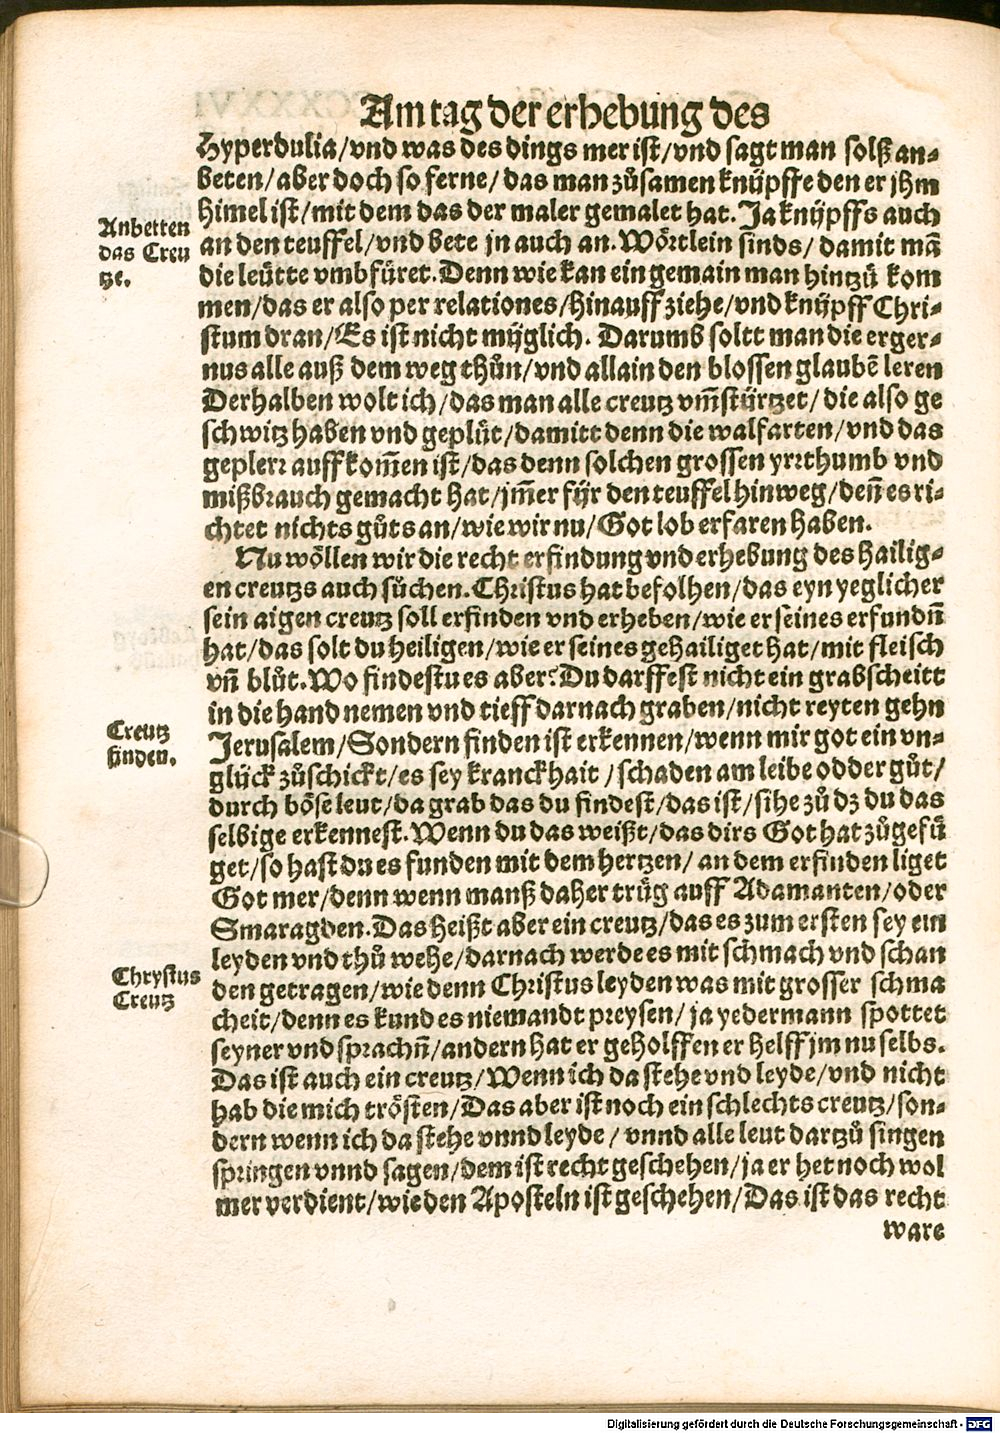 Am tag der erhebung des
Hyperdulia/vnd was des dings mer ist/vnd sagt man solß an-
beten/aber doch so ferne/das man zůsamen knüpffe den er jhm
Himel ist/mit dem das der maler gemalet hat. Ja knüpffs auch
Anbetten
das Creu
tze.
an den teuffel/vnd bete jn auch an. Wörtlein sinds/damit mā
die leütte vmbfüret. Denn wie kan ein gemain man hintzů kom
men/das er also per relationes/hinauff ziehe/vnd knüpff Chri-
stum dran/Es ist nicht müglich. Darumb soltt man die erger-
nus alle auß dem weg thůn/vnd allain den blossen glaubē leren
Derhalben wolt ich/das man alle creutz vm̄stürtzet/die also ge
schwitz haben vnd geplüt/damitt denn die walfarten/vnd das
geplerr auffkom̄en ist/das denn solchen grossen yrrthumb vnd
mißbrauch gemacht hat/jm̄er für den teuffel hinweg/den̄ es ri-
chtet nichts gůts an/wie wir nu/Got lob erfaren haben.
Nu wöllen wir die recht erfindung vnd erhebung des hailig-
en creutzs auch sůchen. Christus hat befolhen/das eyn yeglicher
sein aigen creutz soll erfinden vnd erheben/wie er seines erfundn̄
hat/das solt du heiligen/wie er seines gehailiget hat/mit fleisch
vn̄ blůt. Wo findestu es aber? Du darffest nicht ein grabscheitt
in die hand nemen vnd tieff darnach graben/nicht reyten gehn
Creutz
finden.
Jerusalem/Sondern finden ist erkennen/wenn mir got ein vn-
glück zůschickt/es sey kranckhait/schaden am leibe odder gůt/
durch böse leut/da grab das du findest/das ist/sihe zů dz du das
selbige erkennest. Wenn du das weißt/das dirs Got hat zůgefü
get/so hast du es funden mit dem hertzen/an dem erfinden liget
Got mer/denn wenn manß daher trüg auff Adamanten/oder
Smaragden. Das heißt aber ein creutz/das es zum ersten sey ein
leyden vnd thů wehe/darnach werde es mit schmach vnd schan
Chrystus
Creutz
den getragen/wie denn Christus leyden was mit grosser schma
cheit/denn es kund es niemandt preysen/ja yedermann spottet
seyner vnd sprachn̄/andern hat er geholffen er helff jm nu selbs.
Das ist auch ein creutz/Wenn ich da stehe vnd leyde/vnd nicht
hab die mich trösten/Das aber ist noch ein schlechts creutz/son-
dern wenn ich da stehe vnnd leyde/vnnd alle leut dartzů singen
springen vnnd sagen/dem ist recht geschehen/ja er het noch wol
mer verdient/wie den Aposteln ist geschehen/Das ist das recht
ware
Digitalisierung gefördert durch die Deutsche Forschungsgemeinschaft - DFG